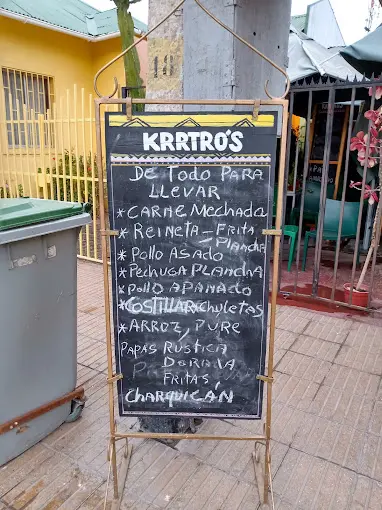 KRRTRO'S
DE TODO PARA
LLEVAR
* CARNE MECHADA
* REINETA - FRITA
PLANCHA
* POLLO ASADO
* PECHUGA PLANCHA
* POLLO APANADO
* COSTILLAR CHULETAS
* ARROZ, PURE
PAPAS RUSTICA
DORADA
FRITAS
CHARQUICÁN